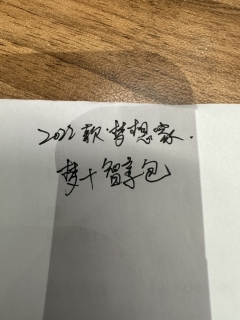 2022款·梦想家.
梦+智享包